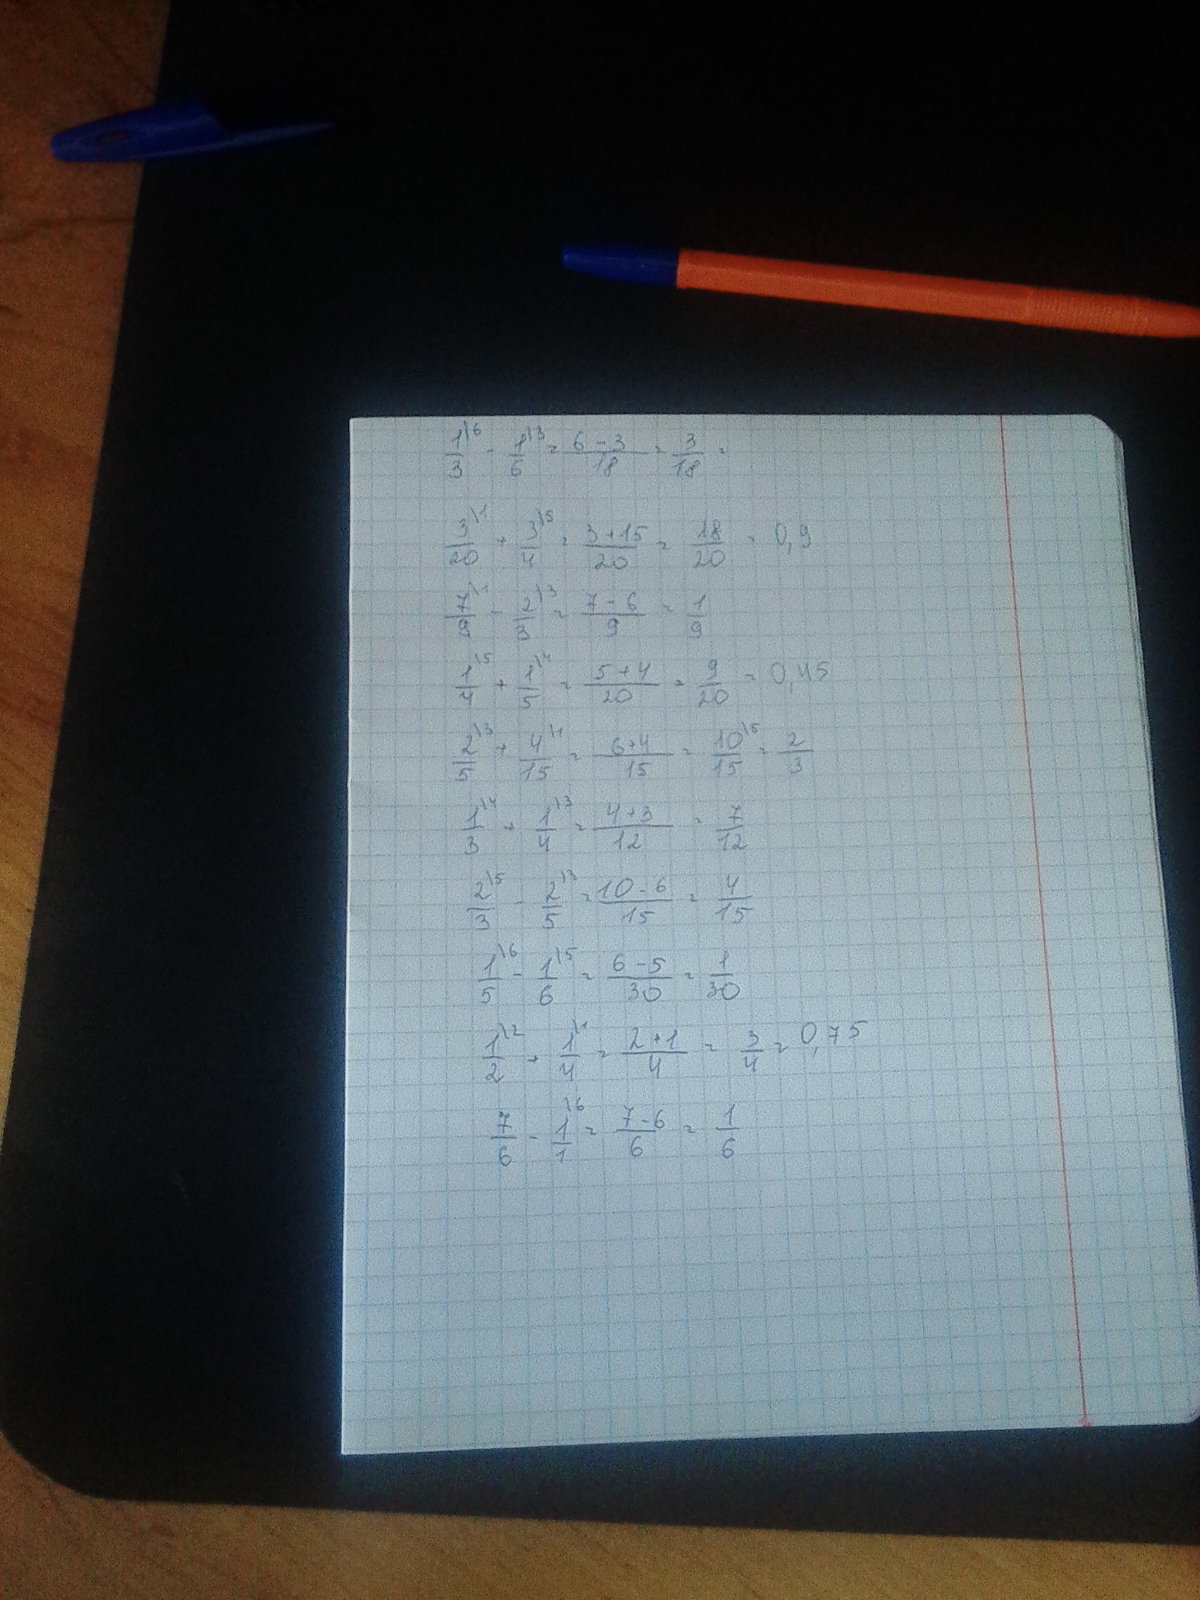 1/3\6 - 1/6\3 = (6-3)/18 = 3/18 =
3/20\1 + 3/4\5 = (3+15)/20 = 18/20 = 0,9
7/9\1 - 2/3\3 = (7-6)/9 = 1/9
1/4\5 + 1/5\4 = (5+4)/20 = 9/20 = 0,45
2/5\3 + 4/15\1 = (6+4)/15 = 10/15\5 = 2/3
1/3\4 + 1/4\3 = (4+3)/12 = 7/12
2/3\5 - 2/5\3 = (10-6)/15 = 4/15
1/5\6 - 1/6\5 = (6-5)/30 = 1/30
1/2\2 + 1/4\1 = (2+1)/4 = 3/4 = 0,75
7/6 - 1/1\6 = (7-6)/6 = 1/6